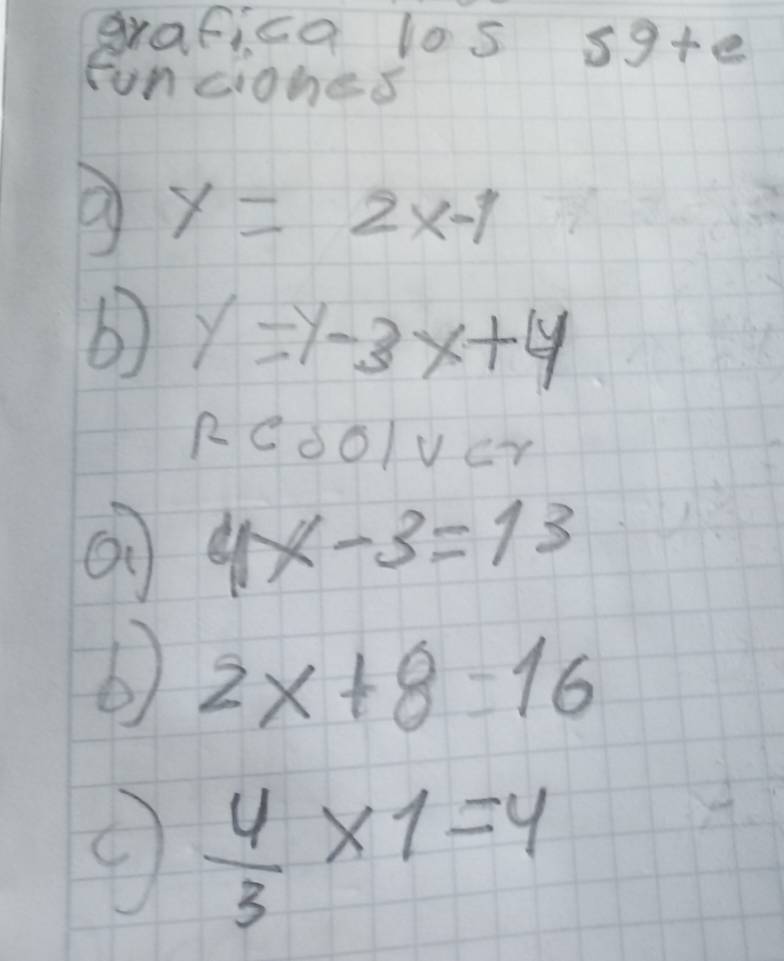 grafica los sgte
funciones
a) y = 2x-1
b) y=y-3x+4
Resolver
a) 4x-3=13
b) 2x+8=16
c) 4/3 x1=4